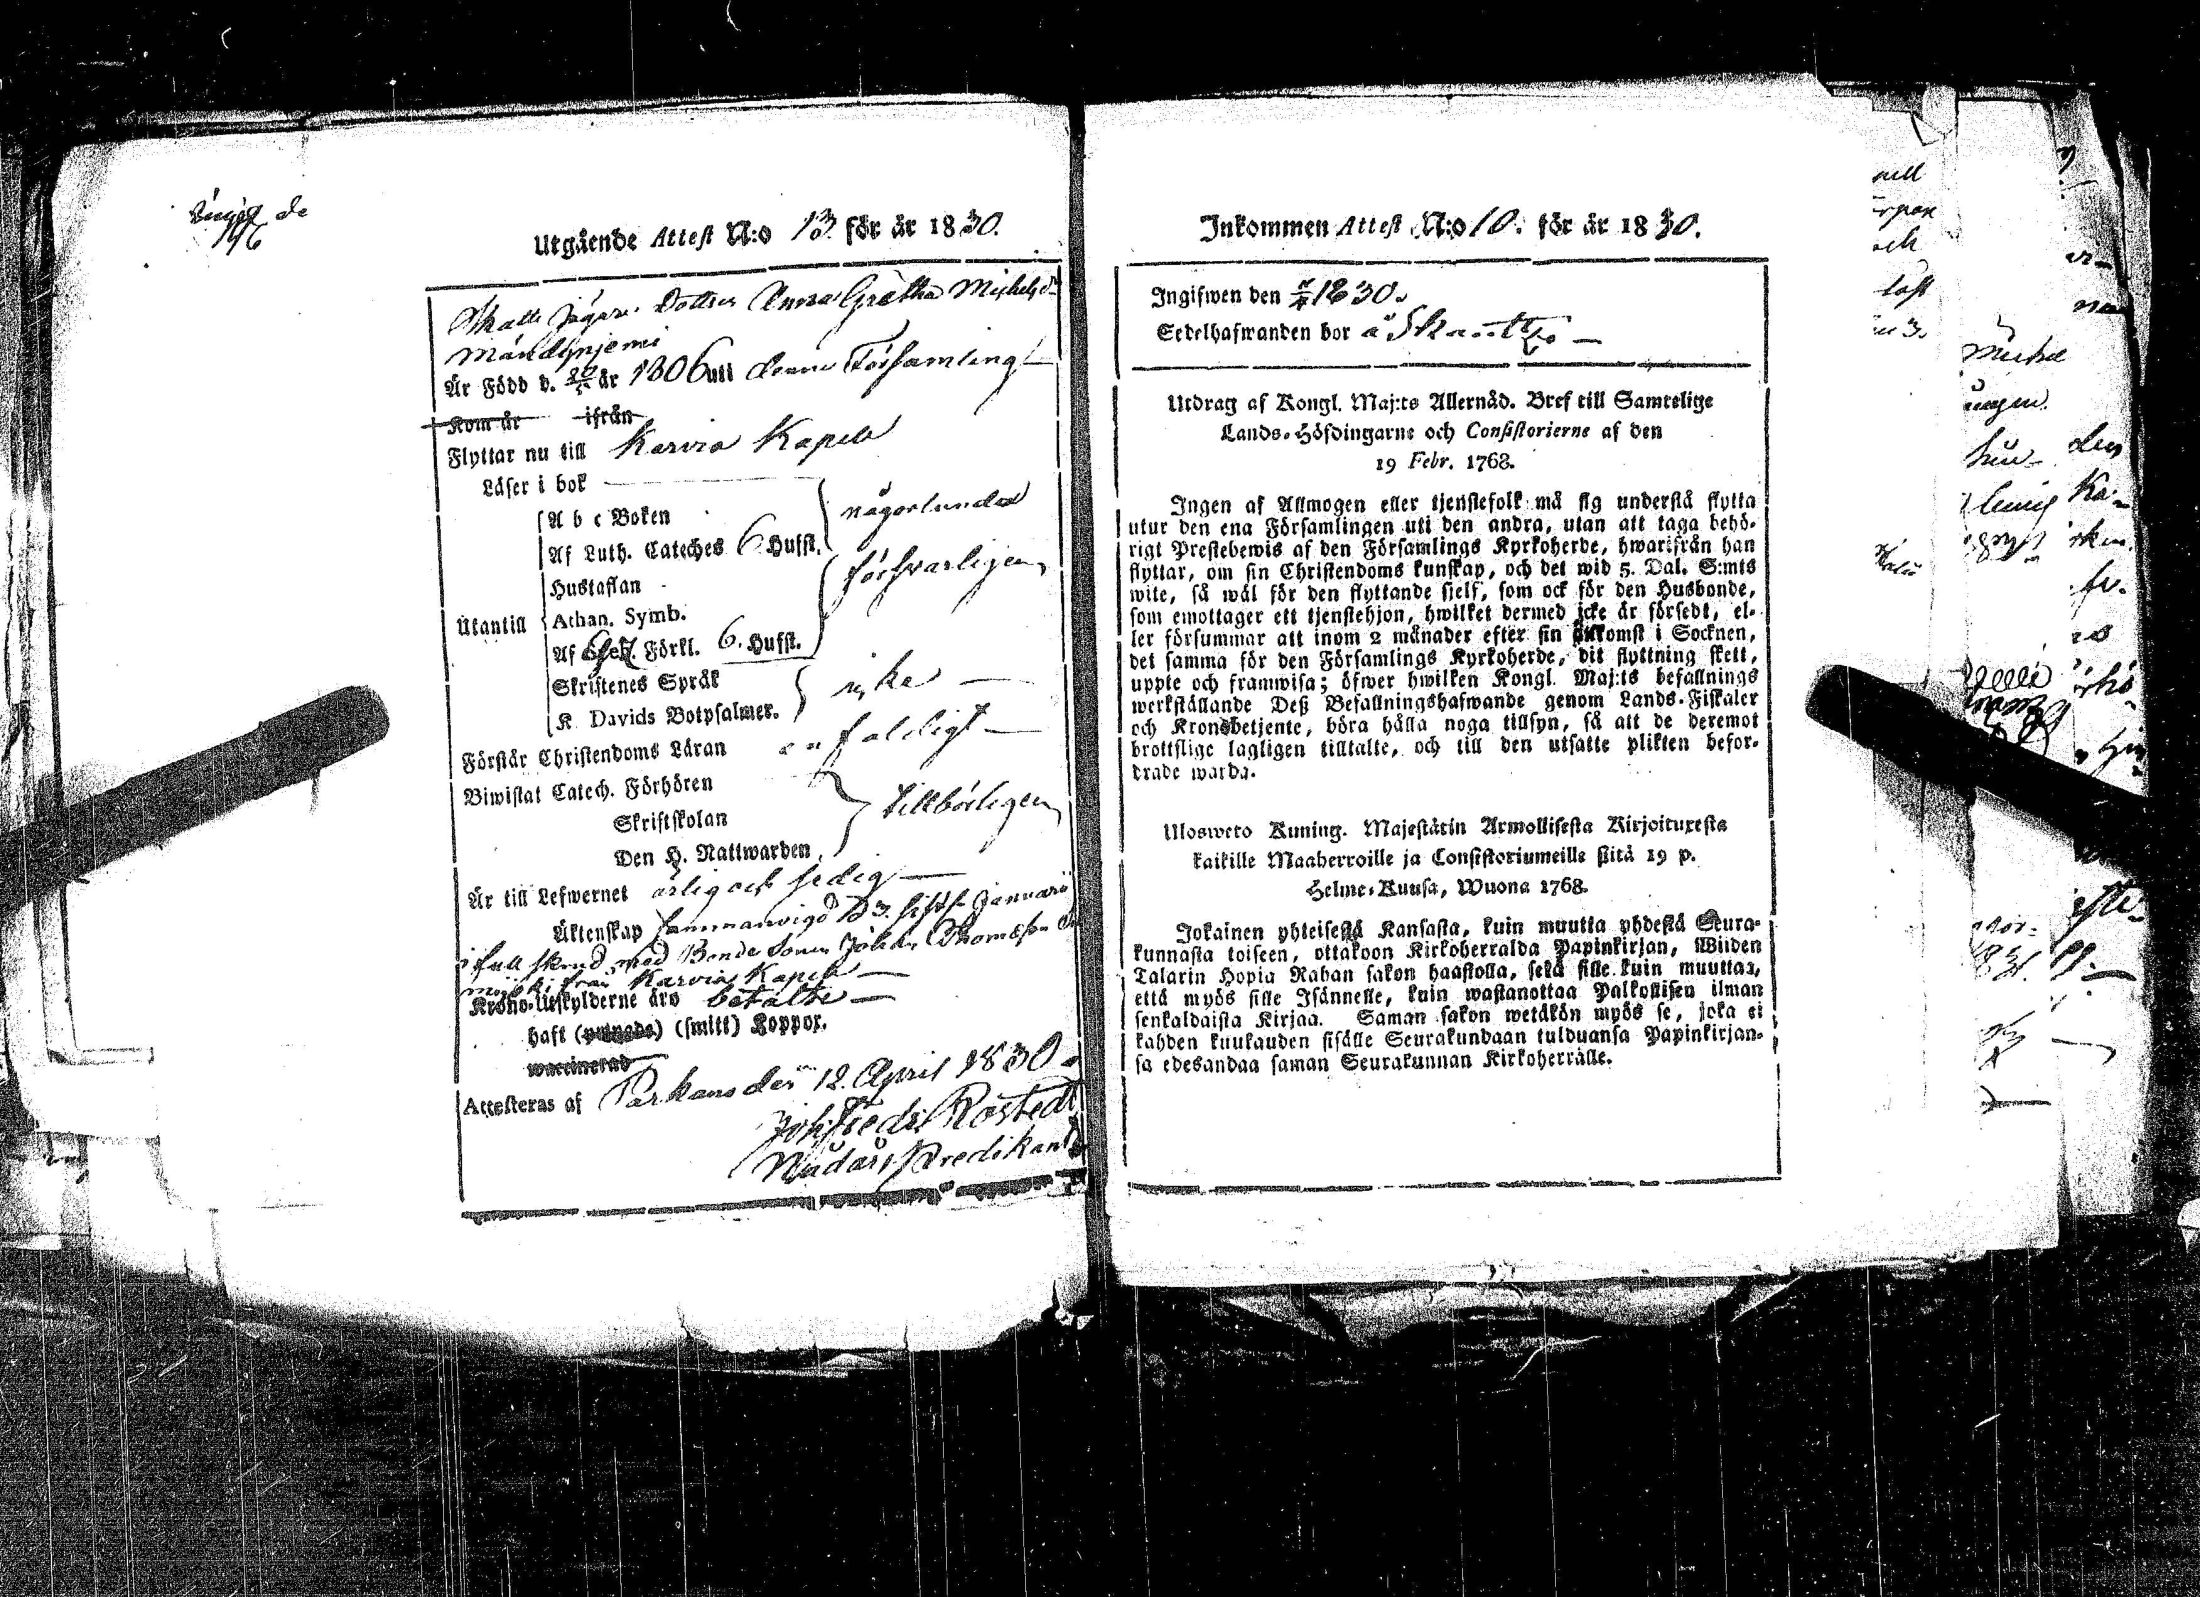 Utgående Attest N:o 13. för år 1830.
Skatte Jägare Dottren Anna Gretha Michelsdr
Mändynjemi
Är Född d. år 1806 uti denna Församling
Kom år ifrån
Flyttar nu till Karvia Kapell
Läser i bok
någorlunda
A b c Boken
Af Luth. Cateches 6 Hufst.
försvarligen
Hustaflan
Utantill
Athan. Symb.
Af Förkl. 6. Hufst.
Skriftenes Språk
icke
K. Davids Botpsalmer.
Förstår Christendoms Läran enfaldigt
Biwistat Catech. Förhören
Skriftskolan
tillbörligen
Den H. Nattwarden
Är till Lefwernet ärlig och sedig
Äktenskap sammanvigd d 3. sistl. Januarii
i full skrud med Bonde Sonen Johan Thomasson
ifrån Karvia Kapell
Krono-Utskylderne äro betalte
haft (smitt) Koppor.
waccinerad
Attesteras af Parkano den 12. April 1830
Joh. Fredr. Rostedt
Nådårs Predikant
Inkommen Attest N:o 10. för år 1830.
Ingifwen den 1830.
Sedelhafwanden bor å Skantz
Utdrag af Kongl. Maj:ts Allernåd. Bref till Samtelige
Lands-Höfdingarne och Consistorierne af den
19 Febr. 1768.
Ingen af Allmogen eller tjenstefolk må sig understå flytta
utur den ena Församlingen uti den andra, utan att taga behö-
rigt Prestebewis af den Församlings Kyrkoherde, hwarifrån han
flyttar, om sin Christendoms kunskap, och det wid 5. Dal. S:mts
wite, så wäl för den flyttande sjelf, som ock för den Husbonde,
som emottager ett tjenstehjon, hwilket dermed icke är försedt, el-
ler försummar att inom 2 månader efter sin ankomst i Socknen,
det samma för den Församlings Kyrkoherde, dit flyttning skett,
uppte och framwisa; öfwer hwilken Kongl. Maj:ts befallnings
werkställande Deß Befallningshafwande genom Lands-Fiskaler
och Kronobetjente, böra hålla noga tillsyn, så att de deremot
brottslige lagligen tilltalte, och till den utsatte plikten befor-
drade warda.
Uloswето Kuning. Majestätin Armollisesta Kirjoituxesta
kaikille Maaherroille ja Consistoriumeille siitä 19 p.
Helme-Kuusa, Wuona 1768.
Jokainen yhteisestä Kansasta, kuin muutta yhdestä Seura-
kunnasta toiseen, ottakoon Kirkoherralda Papinkirjan, Wiiden
Talarin Hopia Rahan sakon haastolla, sekä sille kuin muuttaa,
että myös sille Isännelle, kuin wastanottaa Palkollisen ilman
senkaldaista Kirjaa. Saman sakon wetäkön myös se, joka ei
kahden kuukauden sisälle Seurakundaan tulduansa Papinkirjan-
sa edesandaa saman Seurakunnan Kirkoherralle.